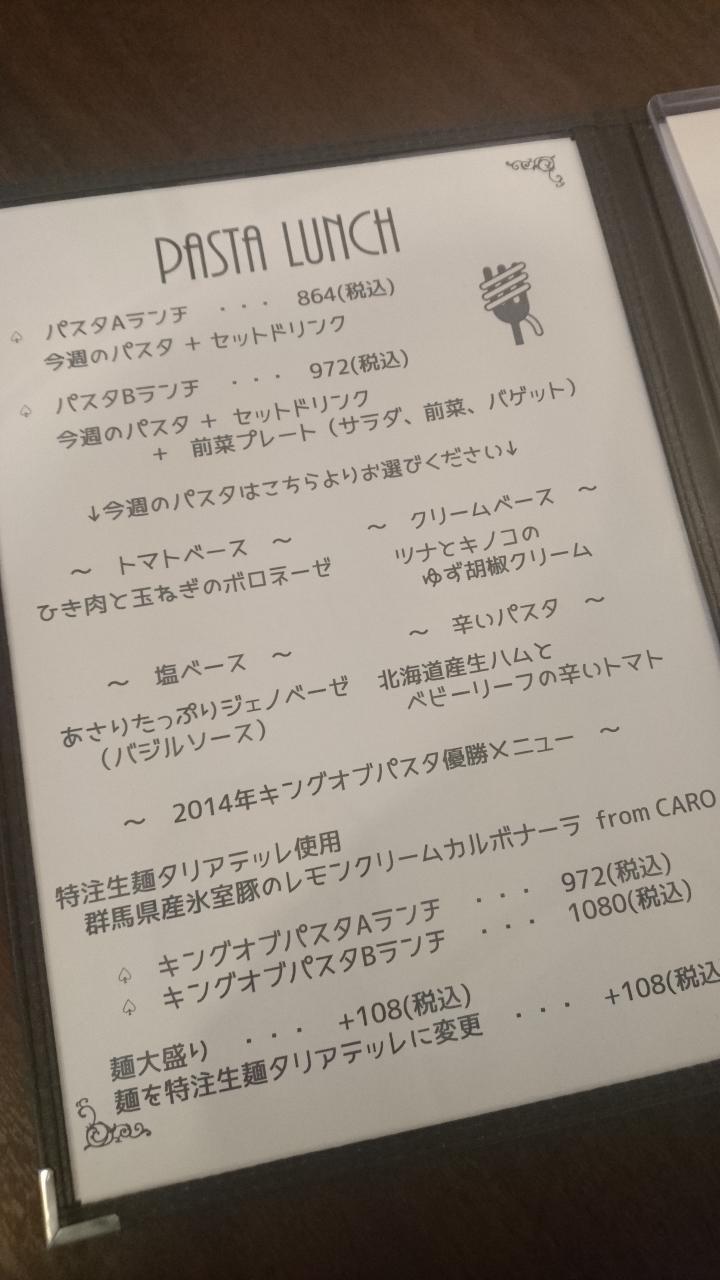 PASTA LUNCH
♤ パスタAランチ ・・・ 864(税込)
今週のパスタ + セットドリンク
♤ パスタBランチ ・・・ 972(税込)
今週のパスタ + セットドリンク
+ 前菜プレート(サラダ、前菜、バゲット)
↓今週のパスタはこちらよりお選びください↓
～ トマトベース ～
ひき肉と玉ねぎのボロネーゼ
～ クリームベース ～
ツナとキノコの
ゆず胡椒クリーム
～ 塩ベース ～
あさりたっぷりジェノベーゼ
(バジルソース)
～ 辛いパスタ ～
北海道産生ハムと
ベビーリーフの辛いトマト
～ 2014年キングオブパスタ優勝メニュー ～
特注生麺タリアテッレ使用
群馬県産氷室豚のレモンクリームカルボナーラ from CARO
♤ キングオブパスタAランチ ・・・ 972(税込)
♤ キングオブパスタBランチ ・・・ 1080(税込)
麺大盛り ・・・ +108(税込)
麺を特注生麺タリアテッレに変更 ・・・ +108(税込